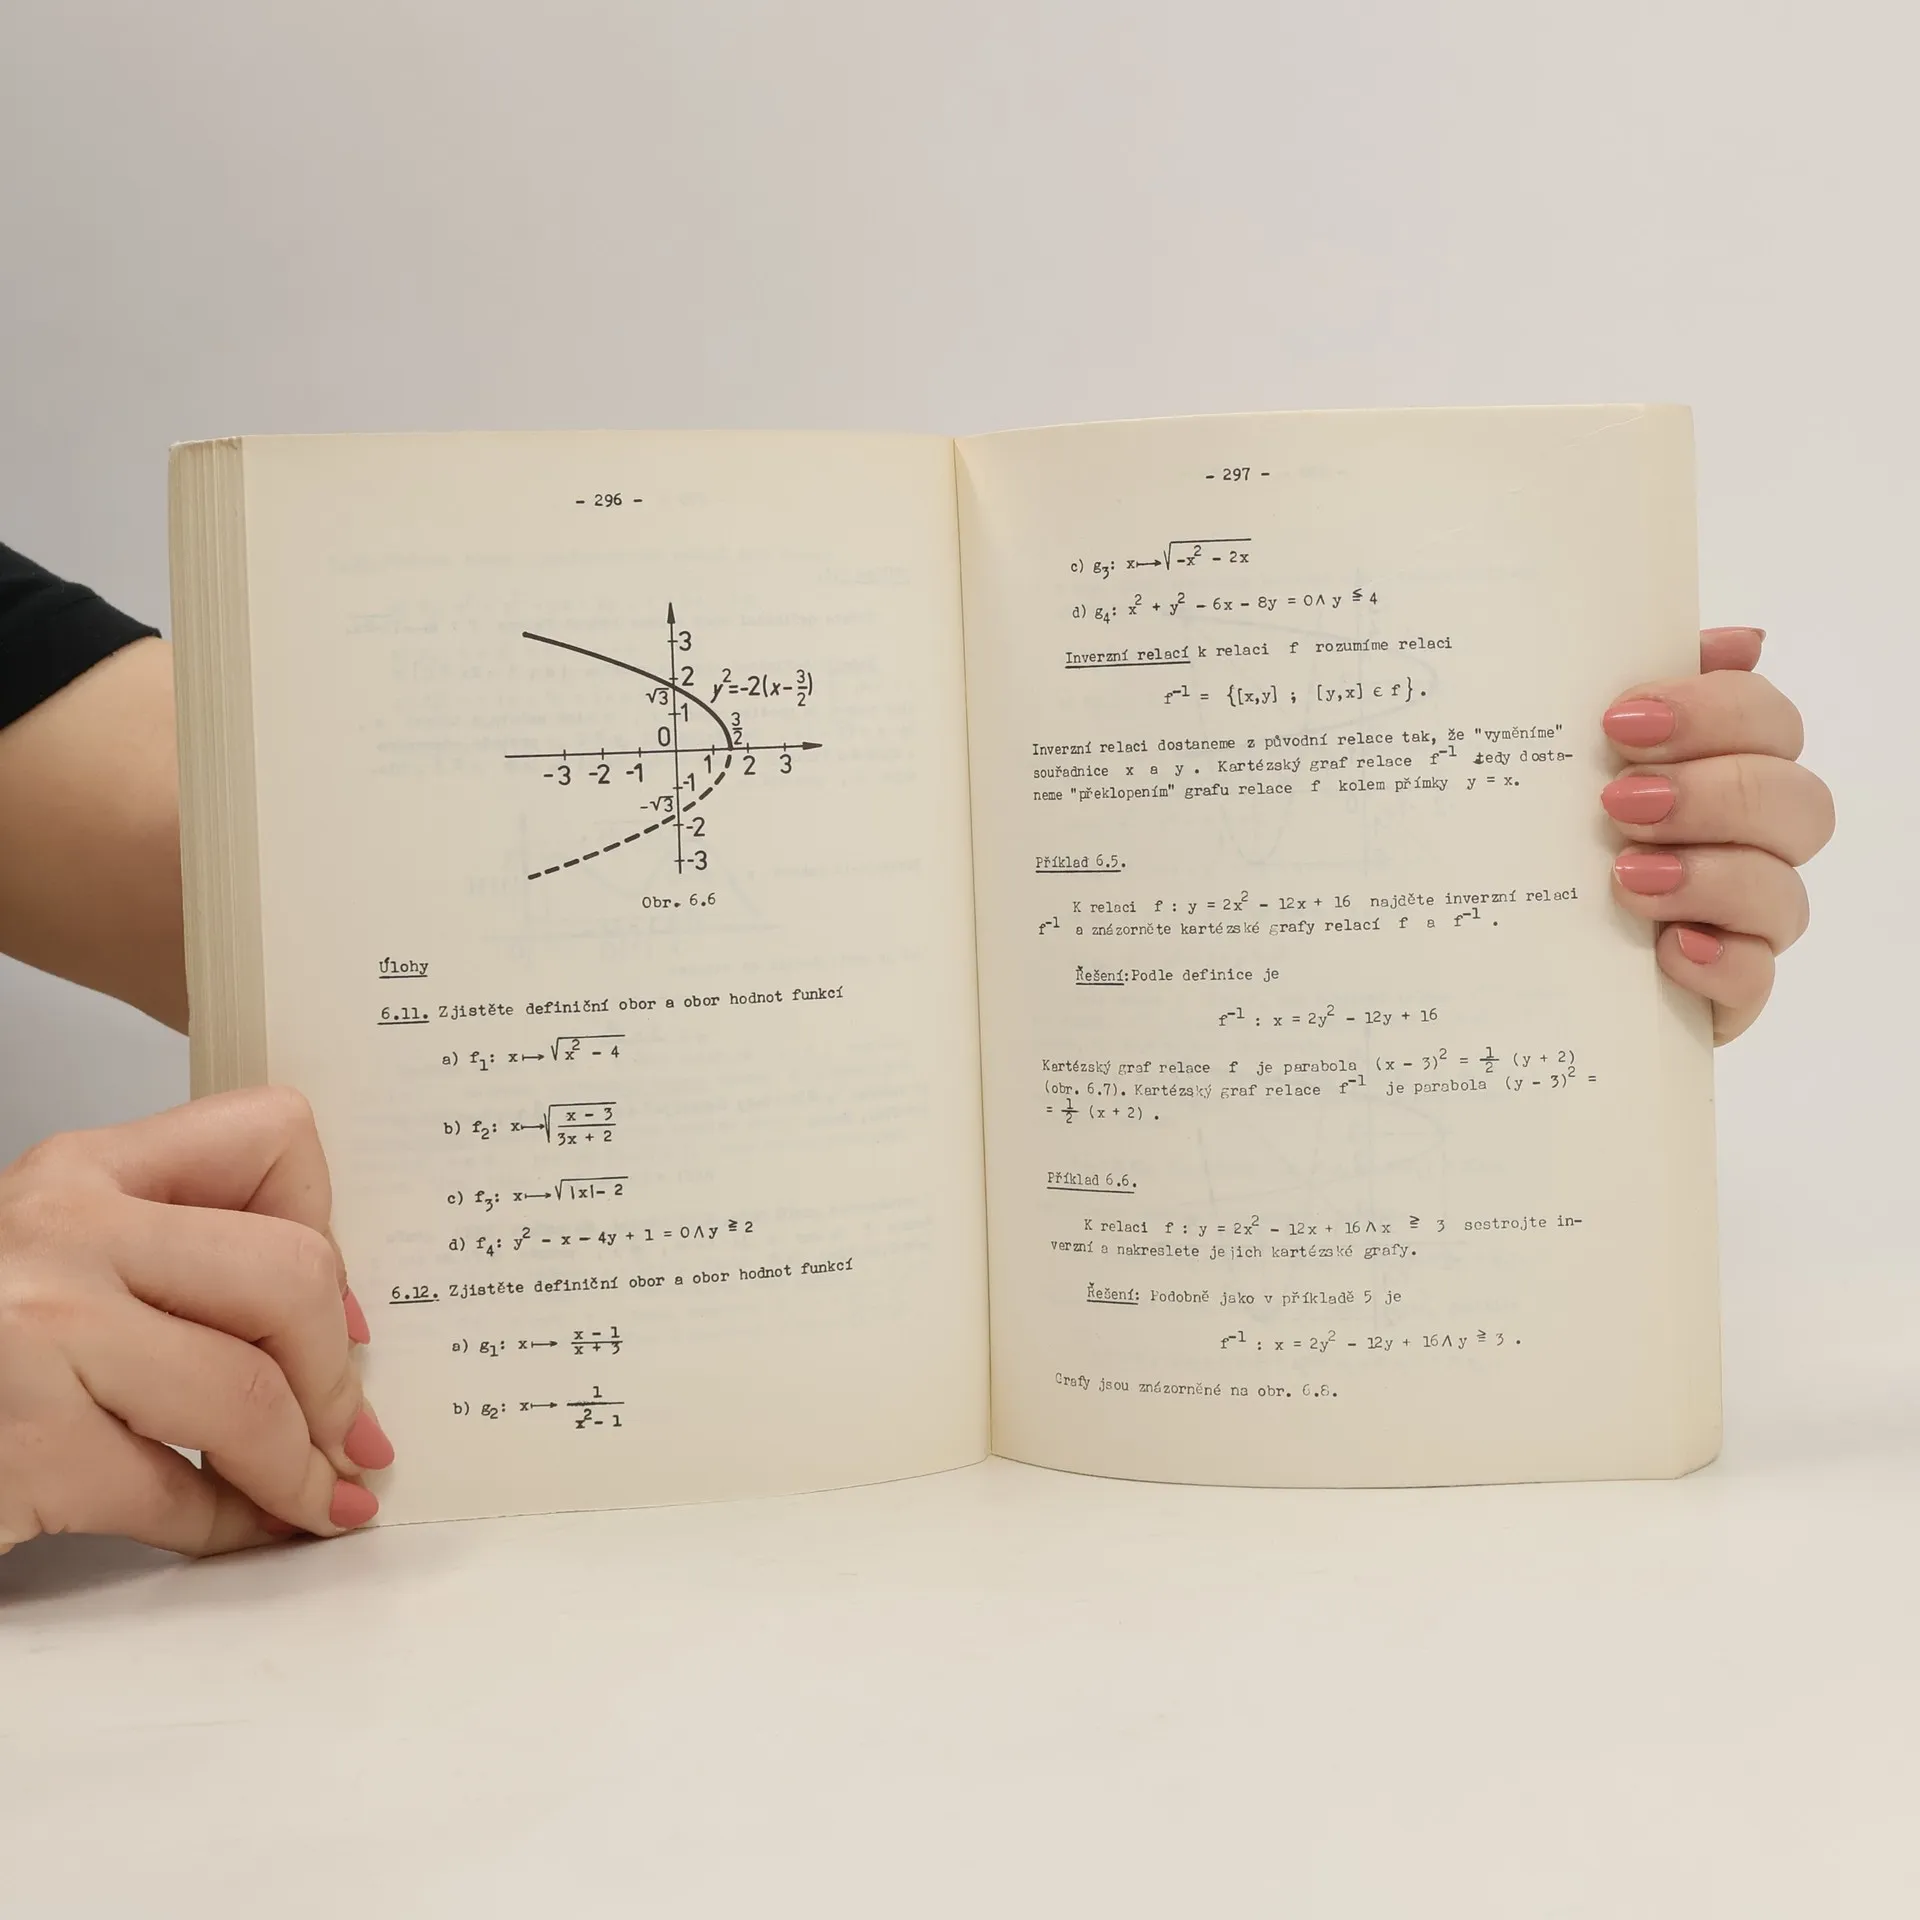 - 296 -
3
2
√3
y²=-2(x-3/2)
1
3/2
0
-3 -2 -1 1 2 3
-1
-√3
-2
-3
Obr. 6.6
Úlohy
6.11. Zjistěte definiční obor a obor hodnot funkcí
a) f₁: x⟼√(x² - 4)
b) f₂: x⟼√((x - 3)/(3x + 2))
c) f₃: x⟼√(|x|- 2)
d) f₄: y² - x - 4y + 1 = 0∧y ≧ 2
6.12. Zjistěte definiční obor a obor hodnot funkcí
a) g₁: x⟼ (x - 1)/(x + 3)
b) g₂: x⟼ 1/(x²- 1)
- 297 -
c) g₃: x⟼√(-x² - 2x)
d) g₄: x² + y² - 6x - 8y = 0∧y ≦ 4
Inverzní relací k relaci f rozumíme relaci
f⁻¹ = {[x,y] ; [y,x] ∈ f}.
Inverzní relaci dostaneme z původní relace tak, že "vyměníme"
souřadnice x a y . Kartézský graf relace f⁻¹ tedy dosta-
neme "překlopením" grafu relace f kolem přímky y = x.
Příklad 6.5.
K relaci f : y = 2x² - 12x + 16 najděte inverzní relaci
f⁻¹ a znázorněte kartézské grafy relací f a f⁻¹ .
Řešení:Podle definice je
f⁻¹ : x = 2y² - 12y + 16
Kartézský graf relace f je parabola (x - 3)² = 1/2 (y + 2)
(obr. 6.7). Kartézský graf relace f⁻¹ je parabola (y - 3)² =
= 1/2 (x + 2) .
Příklad 6.6.
K relaci f : y = 2x² - 12x + 16∧x ≧ 3 sestrojte in-
verzní a nakreslete jejich kartézské grafy.
Řešení: Podobně jako v příkladě 5 je
f⁻¹ : x = 2y² - 12y + 16∧y ≧ 3 .
Grafy jsou znázorněné na obr. 6.8.